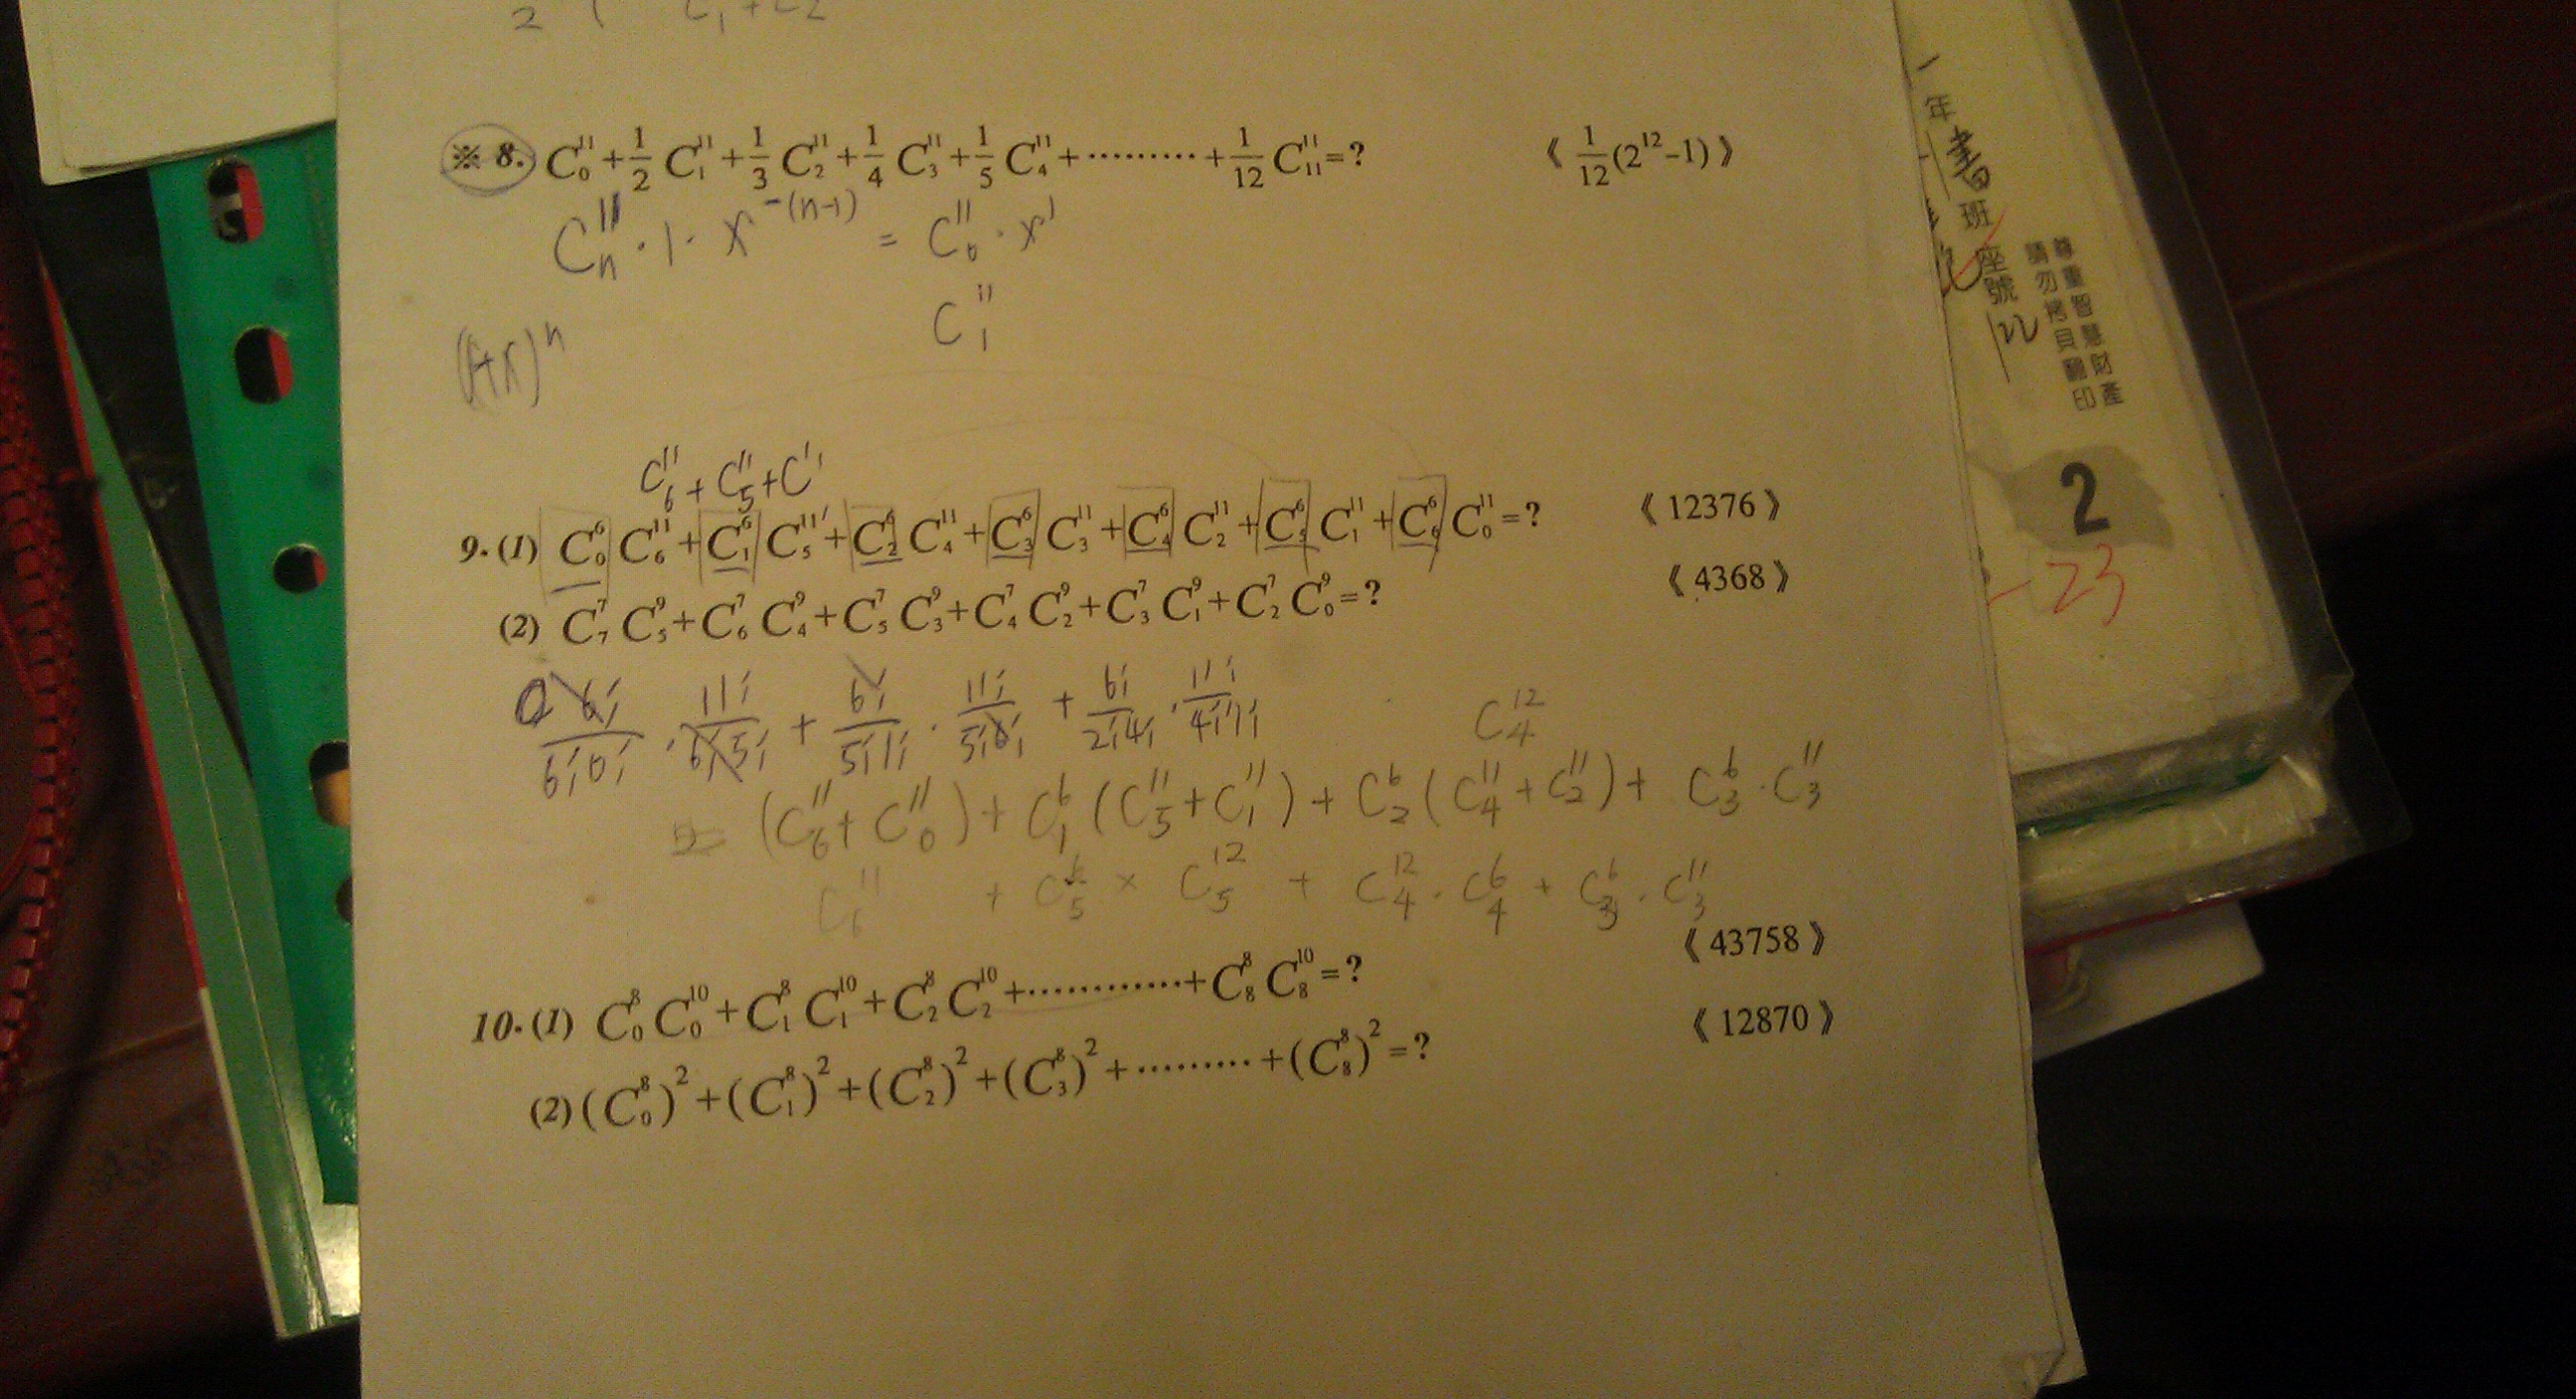 2 ( C₁ + C₂
※ 8. C₀¹¹+1/2 C₁¹¹+1/3 C₂¹¹+1/4 C₃¹¹+1/5 C₄¹¹+⋯⋯⋯+1/12 C₁₁¹¹=? 《 1/12(2¹²−1) 》
Cₙ¹¹ · 1 · x^−(n−1) = C₀¹¹ · x¹
C₁¹¹
(1+x)ⁿ
C₆¹¹ + C₅¹¹ + C¹¹
9. (1) C₀⁶ C₆¹¹ + C₁⁶ C₅¹¹ + C₂⁶ C₄¹¹ + C₃⁶ C₃¹¹ + C₄⁶ C₂¹¹ + C₅⁶ C₁¹¹ + C₆⁶ C₀¹¹=? 《 12376 》
(2) C₇⁷ C₅⁹+C₆⁷ C₄⁹+C₅⁷ C₃⁹+C₄⁷ C₂⁹+C₃⁷ C₁⁹+C₂⁷ C₀⁹=? 《 4368 》
6!/6!0! · 11!/6!5! + 6!/5!1! · 11!/5!6! + 6!/2!4! · 11!/4!7!
C₄¹²
= (C₆¹¹ + C₀¹¹) + C₁⁶ (C₅¹¹ + C₁¹¹) + C₂⁶ (C₄¹¹ + C₂¹¹) + C₃⁶ · C₃¹¹
C₆¹¹ + C₅⁶ × C₅¹² + C₄¹² · C₄⁶ + C₃⁶ · C₃¹¹
10. (1) C₀⁸ C₀¹⁰+C₁⁸ C₁¹⁰+C₂⁸ C₂¹⁰+⋯⋯⋯⋯+C₈⁸ C₈¹⁰=? 《 43758 》
(2) (C₀⁸)²+(C₁⁸)²+(C₂⁸)²+(C₃⁸)²+⋯⋯⋯+(C₈⁸)²=? 《 12870 》
一年書班座號
尊重智慧財產
請勿拷貝翻印
2
-23